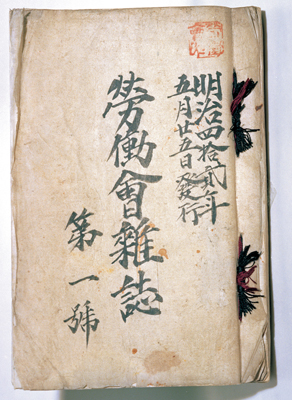 明治四拾貳年
五月廿五日發行
勞働會雜誌
第一號